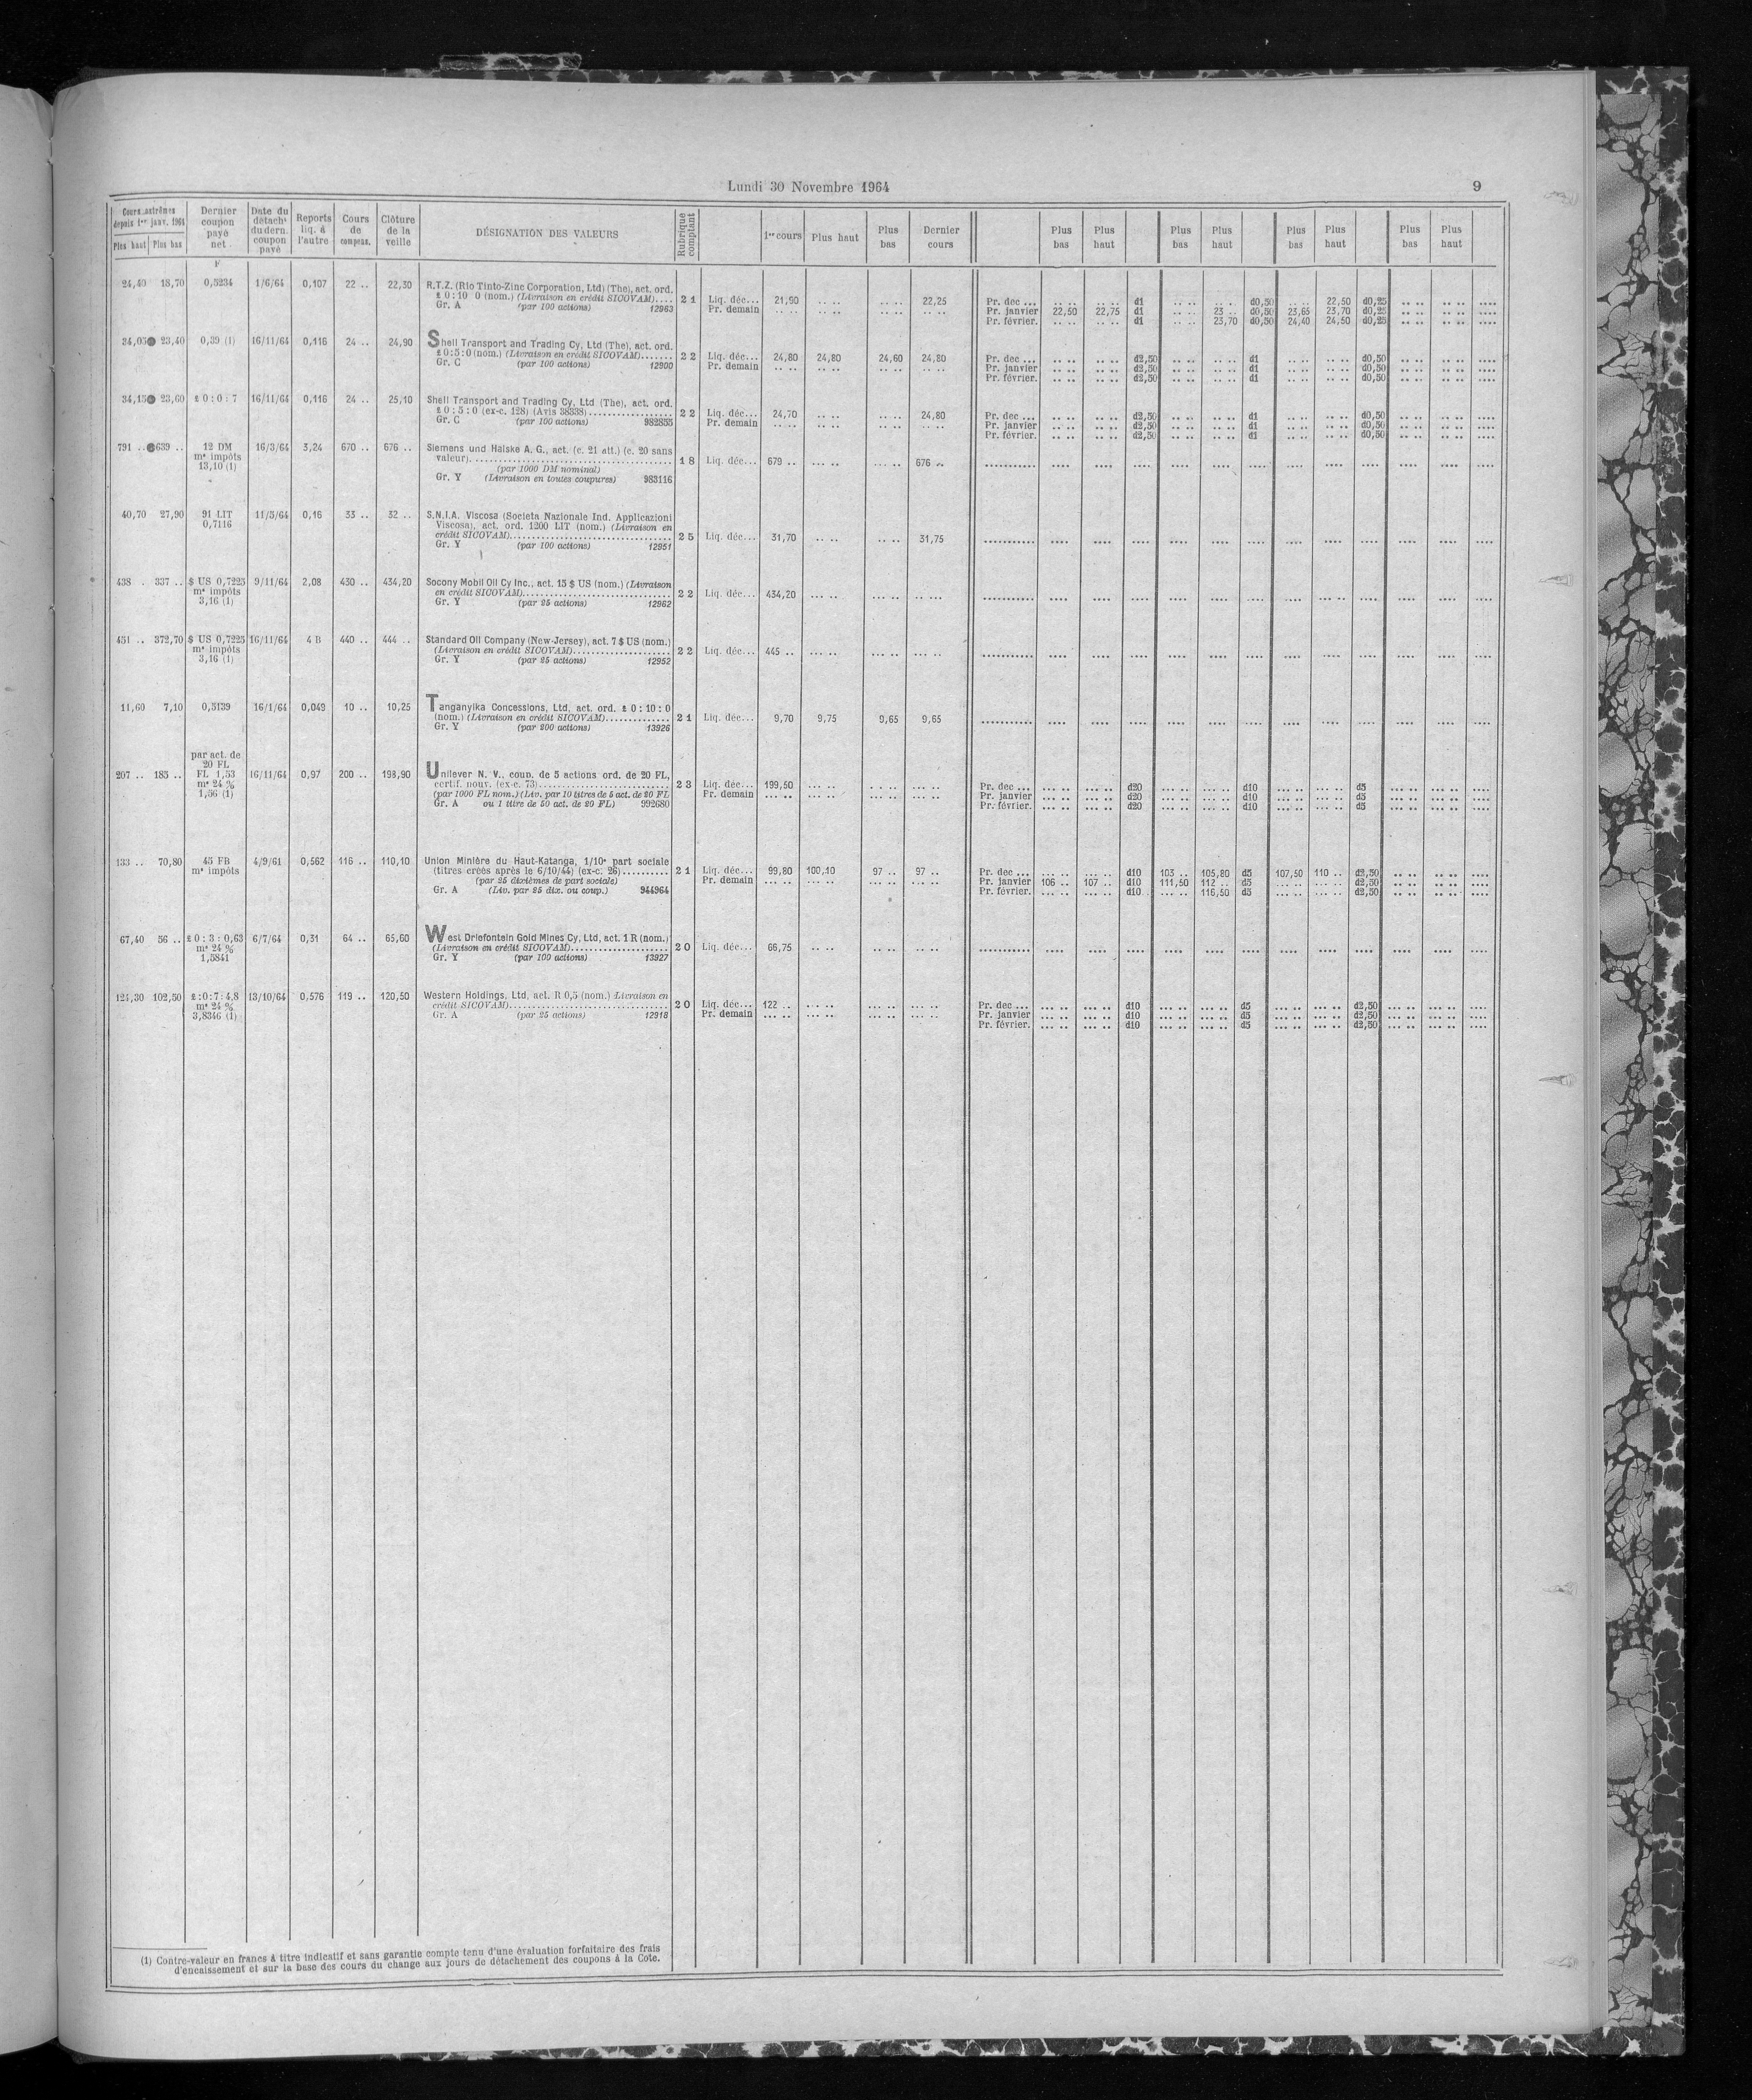 Lundi 30 Novembre 1964
9
Cours extrêmes depuis 1er janv. 1964 Plus haut Plus bas
Dernier coupon payé net
Date du détacht du dern. coupon payé
Reports liq. à l'autre
Cours de compens.
Clôture de la veille
DÉSIGNATION DES VALEURS
Rubrique comptant
1er cours Plus haut Plus bas Dernier cours
Plus bas Plus haut Plus bas Plus haut Plus bas Plus haut Plus bas Plus haut
F
24,40 18,70 0,5234 1/6/64 0,107 22 .. 22,30 R.T.Z. (Rio Tinto-Zinc Corporation, Ltd) (The), act. ord.
£ 0 : 10 0 (nom.) (Livraison en crédit SICOVAM).... 21 Liq. déc... 21,90 .. .. .. .. 22,25 Pr. dec ... .. .. .. .. d1 .. .. .. .. d0,50 .. .. 22,50 d0,25 .. .. .. .. ....
Gr. A (par 100 actions) 12963 Pr. demain .. .. .. .. .. .. .. .. Pr. janvier 22,50 22,75 d1 .. .. 23 .. d0,50 23,65 23,70 d0,25 .. .. .. .. ....
Pr. février. .. .. .. .. d1 .. .. 23,70 d0,50 24,40 24,50 d0,25 .. .. .. .. ....
34,05 23,40 0,39 (1) 16/11/64 0,116 24 .. 24,90 Shell Transport and Trading Cy, Ltd (The), act. ord.
£ 0 : 5 : 0 (nom.) (Livraison en crédit SICOVAM)....... 22 Liq. déc... 24,80 24,80 24,60 24,80 Pr. dec ... .. .. .. .. d2,50 .. .. .. .. d1 .. .. .. .. d0,50 .. .. .. .. ....
Gr. C (par 100 actions) 12900 Pr. demain .. .. .. .. .. .. .. .. Pr. janvier .. .. .. .. d2,50 .. .. .. .. d1 .. .. .. .. d0,50 .. .. .. .. ....
Pr. février. .. .. .. .. d2,50 .. .. .. .. d1 .. .. .. .. d0,50 .. .. .. .. ....
34,15 23,60 £ 0 : 0 : 7 16/11/64 0,116 24 .. 25,10 Shell Transport and Trading Cy, Ltd (The), act. ord.
£ 0 : 5 : 0 (ex-c. 128) (Avis 38338)................. 22 Liq. déc... 24,70 .. .. .. .. 24,80 Pr. dec ... .. .. .. .. d2,50 .. .. .. .. d1 .. .. .. .. d0,50 .. .. .. .. ....
Gr. C (par 100 actions) 982855 Pr. demain .. .. .. .. .. .. .. .. Pr. janvier .. .. .. .. d2,50 .. .. .. .. d1 .. .. .. .. d0,50 .. .. .. .. ....
Pr. février. .. .. .. .. d2,50 .. .. .. .. d1 .. .. .. .. d0,50 .. .. .. .. ....
791 .. 639 .. 12 DM 16/3/64 3,24 670 .. 676 .. Siemens und Halske A. G., act. (c. 21 att.) (c. 20 sans
ms impôts valeur)........................................ 18 Liq. déc... 679 .. ... .. .. .. 676 ..
13,10 (1) (par 1000 DM nominal)
Gr. Y (Livraison en toutes coupures) 983116
40,70 27,90 91 LIT 11/5/64 0,16 33 .. 32 .. S.N.I.A. Viscosa (Societa Nazionale Ind. Applicazioni
0,7116 Viscosa), act. ord. 1200 LIT (nom.) (Livraison en
crédit SICOVAM)................................ 25 Liq. déc... 31,70 .. .. .. .. 31,75
Gr. Y (par 100 actions) 12951
438 . 337 .. $ US 0,7225 9/11/64 2,08 430 .. 434,20 Socony Mobil Oil Cy Inc., act. 15 $ US (nom.) (Livraison
ms impôts en crédit SICOVAM)................................ 22 Liq. déc... 434,20 ... .. .. .. .. ...
3,16 (1) Gr. Y (par 25 actions) 12962
451 .. 372,70 $ US 0,7225 16/11/64 4 B 440 .. 444 .. Standard Oil Company (New-Jersey), act. 7 $ US (nom.)
ms impôts (Livraison en crédit SICOVAM)..................... 22 Liq. déc... 445 .. ... .. ... .. ... ..
3,16 (1) Gr. Y (par 25 actions) 12952
11,60 7,10 0,5139 16/1/64 0,049 10 .. 10,25 Tanganyika Concessions, Ltd, act. ord. £ 0 : 10 : 0
(nom.) (Livraison en crédit SICOVAM)............. 21 Liq. déc... 9,70 9,75 9,65 9,65
Gr. Y (par 200 actions) 13926
par act. de
20 FL
207 .. 185 .. FL 1,53 16/11/64 0,97 200 .. 198,90 Unilever N. V., coup. de 5 actions ord. de 20 FL,
ms 24 % certif. nouv. (ex-c. 73)........................... 23 Liq. déc... 199,50 ... .. ... .. ... .. Pr. dec ... ... .. ... .. d20 ... .. ... .. d10 ... .. ... .. d5 ... .. ... .. ....
1,56 (1) (par 1000 FL nom.) (Liv. par 10 titres de 5 act. de 20 FL Pr. demain ... .. ... .. ... .. ... .. Pr. janvier ... .. ... .. d20 ... .. ... .. d10 ... .. ... .. d5 ... .. ... .. ....
Gr. A ou 1 titre de 50 act. de 20 FL) 992680 Pr. février. ... .. ... .. d20 ... .. ... .. d10 ... .. ... .. d5 ... .. ... .. ....
133 .. 70,80 45 FB 4/9/61 0,562 116 .. 110,10 Union Minière du Haut-Katanga, 1/10e part sociale
ms impôts (titres créés après le 6/10/44) (ex-c. 26).......... 21 Liq. déc... 99,80 100,10 97 .. 97 .. Pr. dec ... ... .. ... .. d10 103 .. 105,80 d5 107,50 110 .. d2,50 .. .. .. .. ....
(par 25 dixièmes de part sociale) Pr. demain ... .. ... .. ... .. ... .. Pr. janvier 106 .. 107 .. d10 111,50 112 .. d5 ... .. ... .. d2,50 .. .. .. .. ....
Gr. A (Liv. par 25 dix. ou coup.) 944964 Pr. février. ... .. ... .. d10 ... .. 116,50 d5 ... .. ... .. d2,50 .. .. .. .. ....
67,40 56 .. £ 0 : 3 : 0,63 6/7/64 0,31 64 .. 65,60 West Driefontein Gold Mines Cy, Ltd, act. 1 R (nom.)
ms 24 % (Livraison en crédit SICOVAM)................... 20 Liq. déc... 66,75 .. .. .. .. .. ..
1,5841 Gr. Y (par 100 actions) 13927
124,30 102,50 £ : 0 : 7 : 4,8 13/10/64 0,576 119 .. 120,50 Western Holdings, Ltd, act. R 0,5 (nom.) Livraison en
ms 24 % crédit SICOVAM)................................ 20 Liq. déc... 122 .. ... .. ... .. ... .. Pr. dec ... ... .. ... .. d10 ... .. ... .. d5 ... .. ... .. d2,50 ... .. ... .. ....
3,8346 (1) Gr. A (par 25 actions) 12918 Pr. demain ... .. ... .. ... .. ... .. Pr. janvier ... .. ... .. d10 ... .. ... .. d5 ... .. ... .. d2,50 ... .. ... .. ....
Pr. février. ... .. ... .. d10 ... .. ... .. d5 ... .. ... .. d2,50 ... .. ... .. ....
(1) Contre-valeur en francs à titre indicatif et sans garantie compte tenu d'une évaluation forfaitaire des frais
d'encaissement et sur la base des cours du change aux jours de détachement des coupons à la Cote.